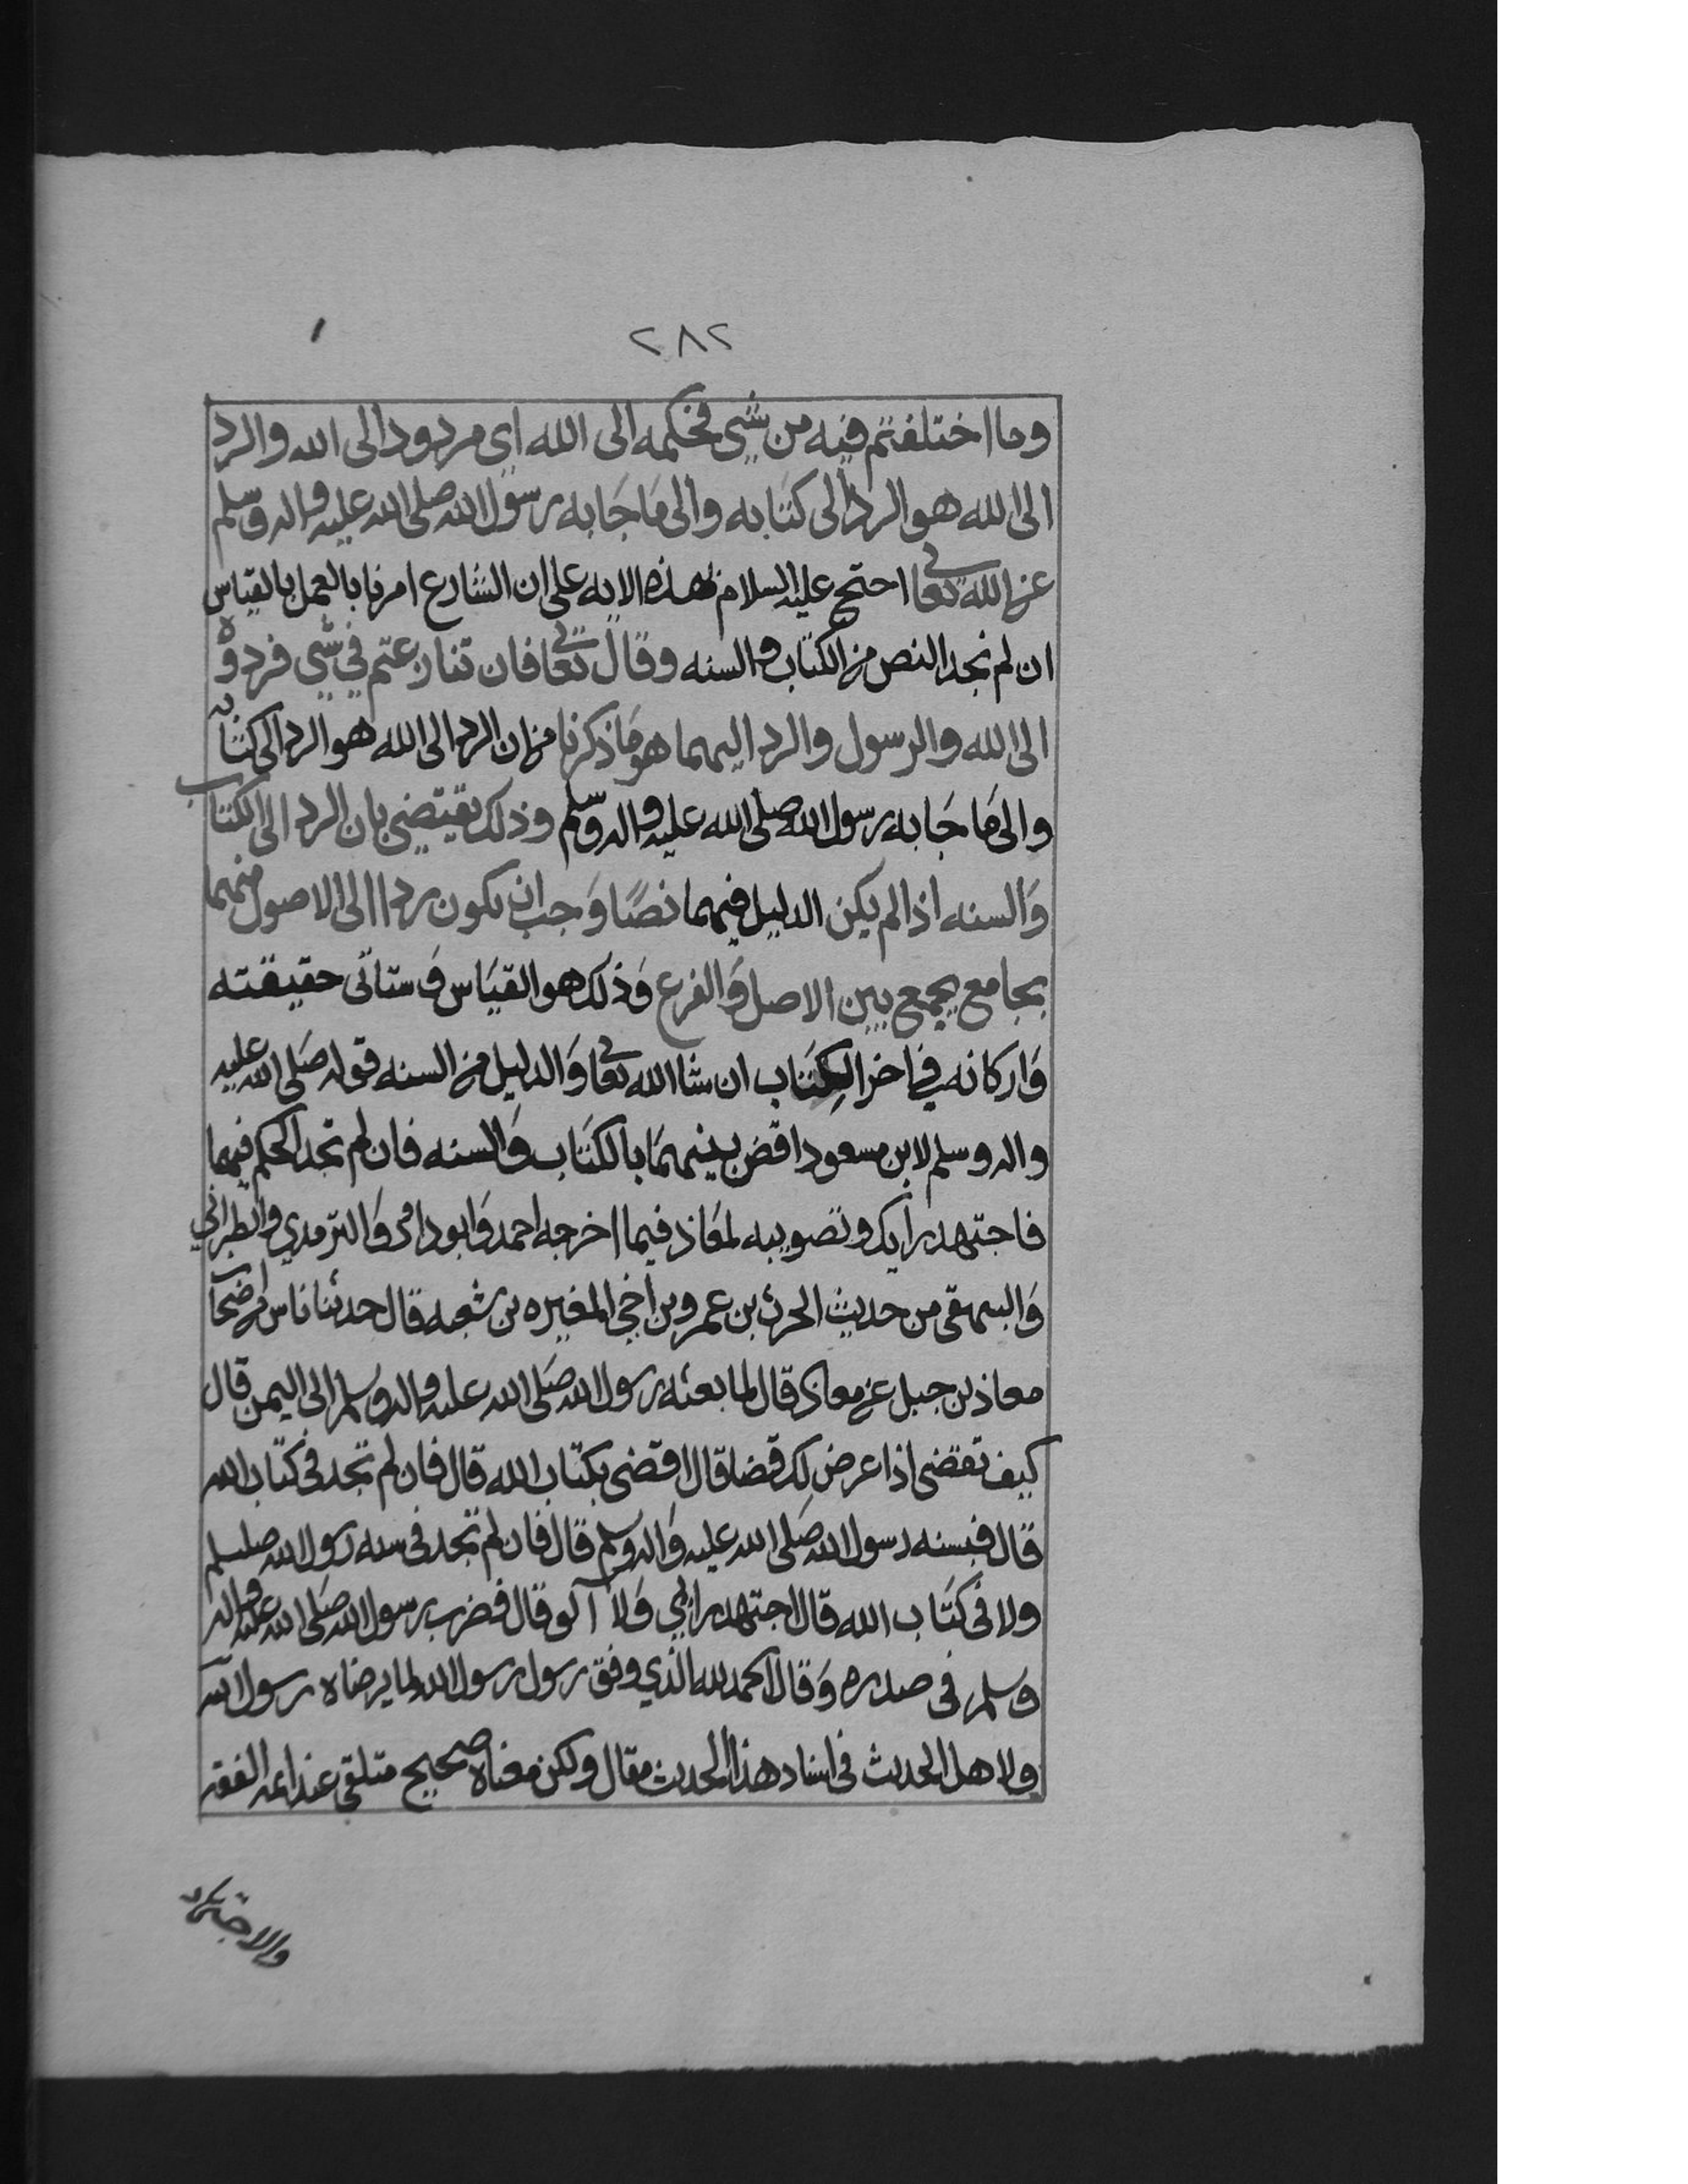 ٢٨٢
وما اختلفتم فيه من شي فحكمه الى الله اي مردود الى الله والرد
الى الله هو الرد الى كتابه والى مَا جَا به رسول الله صلى الله عليه واله وسلم
عن الله تعالى احتج عليه السلام بهذه الايه على ان الشارع امرنا بالعمل بالقياس
ان لم نجد النص من الكتاب والسنه وقال تعالى فان تنازعتم في شي فردوه
الى الله والرسول والرد اليهما هو مَا ذكرنا من ان الرد الى الله هو الرد الى كتابه
والى مَا جَا به رسول الله صلى الله عليه واله وسلم وذلك يقتضي بان الرد الى الكتاب
وَالسنه اذا لم يكن الدليل فيهما نصًا وَجب ان يكون ردا الى الاصول منهما
بجامع يجمع بين الاصل وَالفرع وَذلك هو القيَاس وَستاتي حقيقته
وَاركانه في اخر الكِتَاب ان شا الله تعالى وَالدليل من السنه قوله صَلى الله عليه
واله وسلم لابن مسعود اقض بينهمَا بالكتَاب وَالسنه فان لم تجد الحكم فيهما
فاجتهد رايك وتصويبه لمعَاذ فيما اخرجه احمد وَابو داود وَالترمدي والطبراني
وَالبيهقي من حديث الحرث بن عمرو بن اخي المغيره بن شعبه قال حدثنا ناس من اصحاب
معاذ بن جبل عن معاذ قال لما بعثه رسول الله صَلى الله عليه واله وسلم الى اليمن قال
كيف تقضي اذا عرض لك قضا قال اقضي بكتاب الله قال فان لم تجد في كتاب الله
قال فبسنه رسول الله صَلى الله عليه وَاله وسلم قال فان لم تجد في سنه رسول الله صلىسلم
ولا في كتَاب الله قال اجتهد رايي وَلا آلو قال فضرب رسول الله صَلى الله عليه واله
وسلم في صدره وَقال الحمد لله الذي وفق رسول رسول الله لما يرضاه رسول الله
ولاهل الحديث في اسناد هذا الحديث مقال ولكن معناه صحيح متلقى عند ائمه الفقه